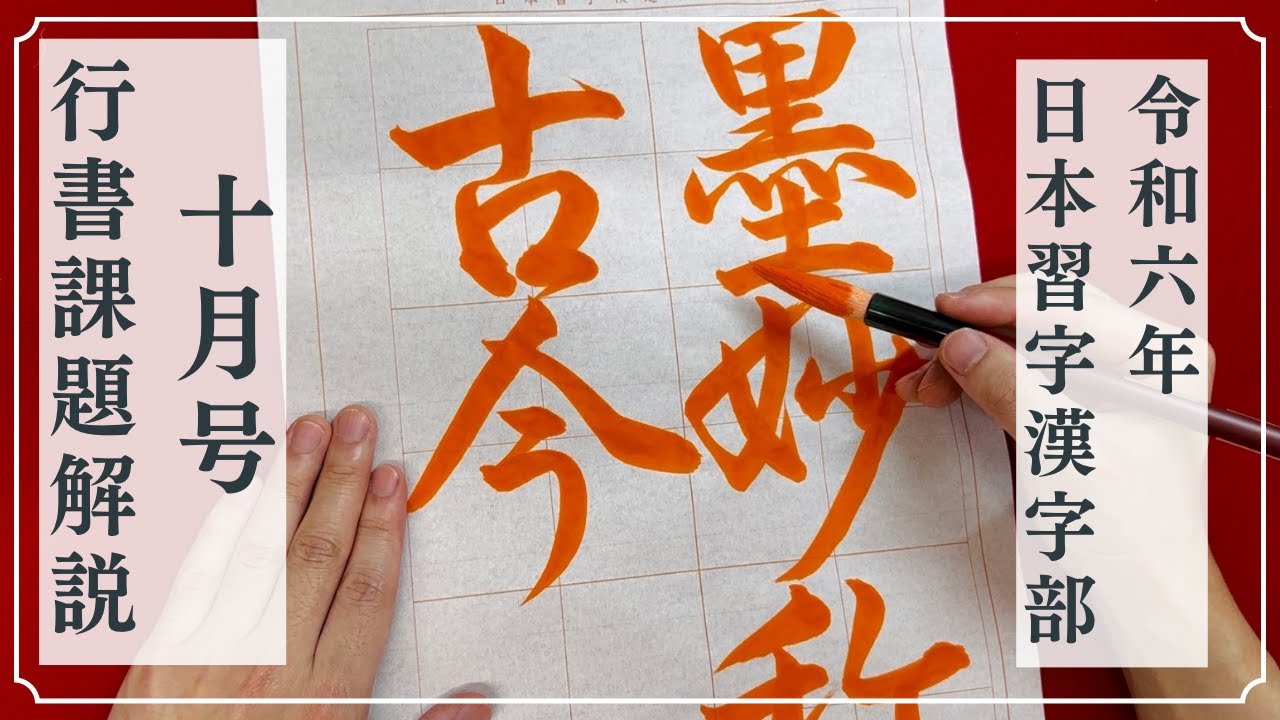 令和六年
日本習字漢字部
墨妙
古今
十月号
行書課題解説